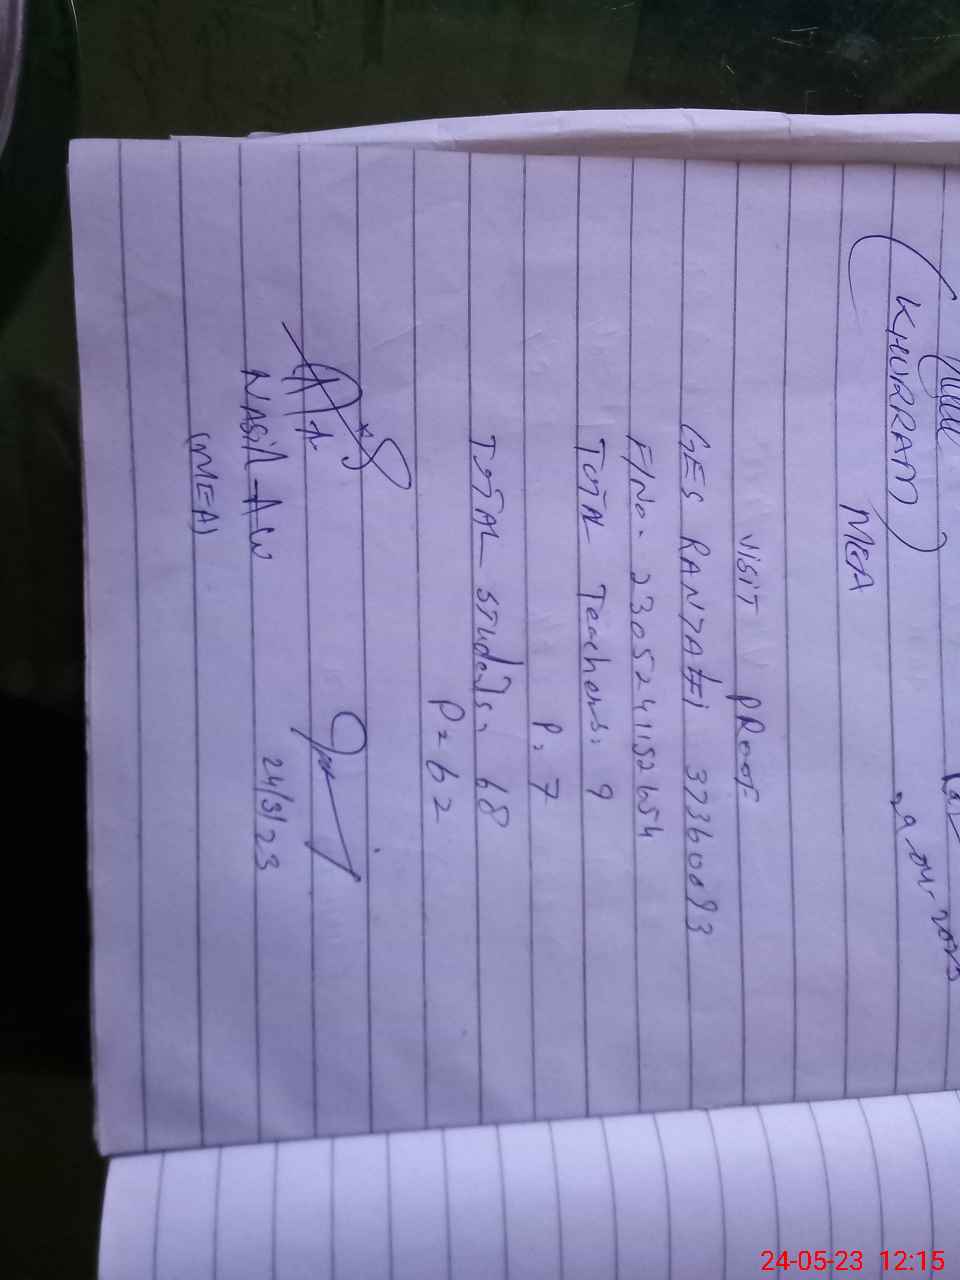 (KHURRAM)
MEA
VISIT PROOF
GES 37360093
F/No. 2305241152654
TOTAL Teachers: 9
P: 7
TOTAL Students: 68
P= 62
24/5/23
NASIR
(MEA)
24-05-23 12:15